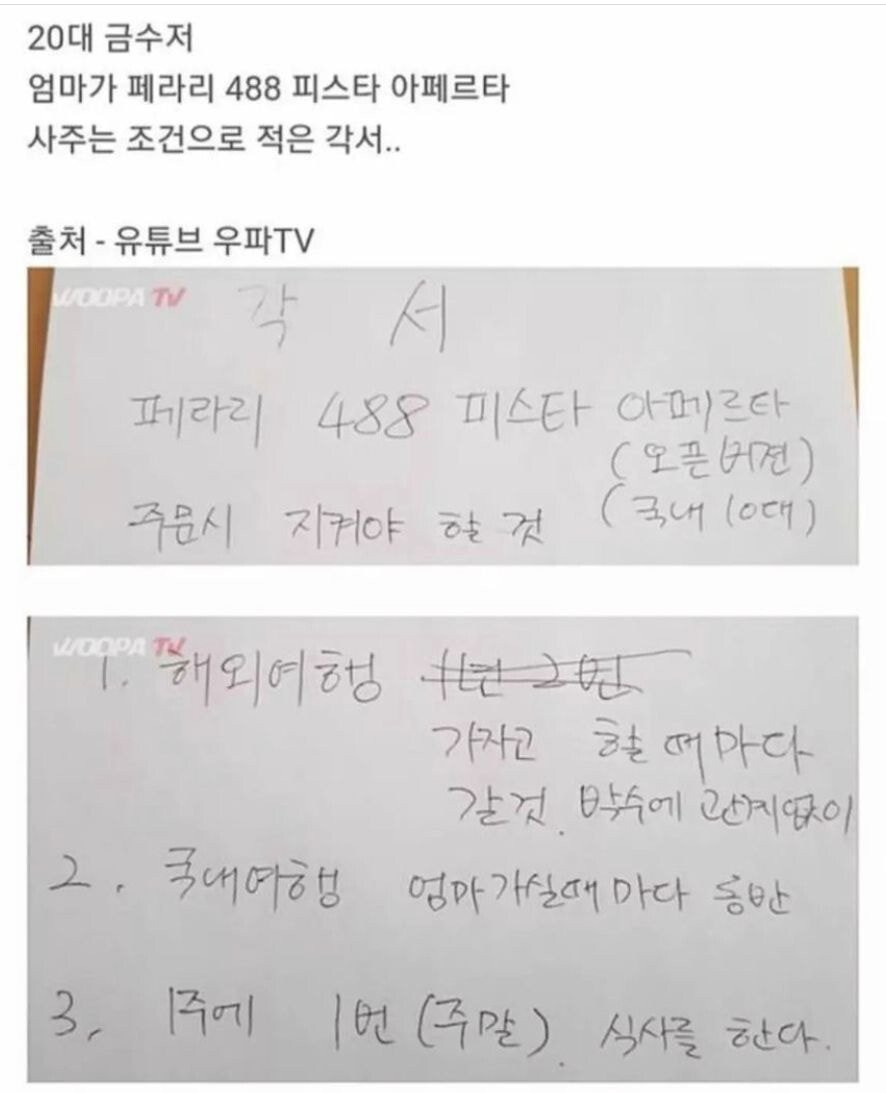 20대 금수저
엄마가 페라리 488 피스타 아페르타
사주는 조건으로 적은 각서..
출처 - 유튜브 우파TV
WOOPA TV
각 서
페라리 488 피스타 아페르타
(오픈버젼)
(국내 10대)
주문시 지켜야 할 것
WOOPA TV
1. 해외여행 1년 2번
가자고 할 때마다
갈것. 박수에 관계없이
2. 국내여행 엄마가실때마다 동반
3. 1주에 1번 (주말). 식사를 한다.